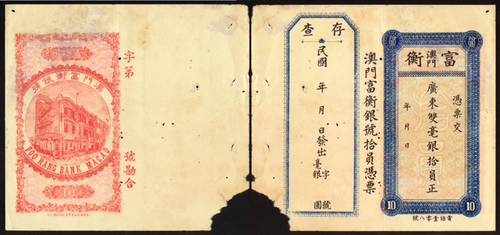 澳門富衡銀號
FOO HANG BANK MACAO
字第
號勘合
存查
民國
年月日發出毫銀
字
號
圓
澳門富衡銀號拾員憑票
富
澳門
衡
憑票交
廣東雙毫銀拾員正
年月日
10
10